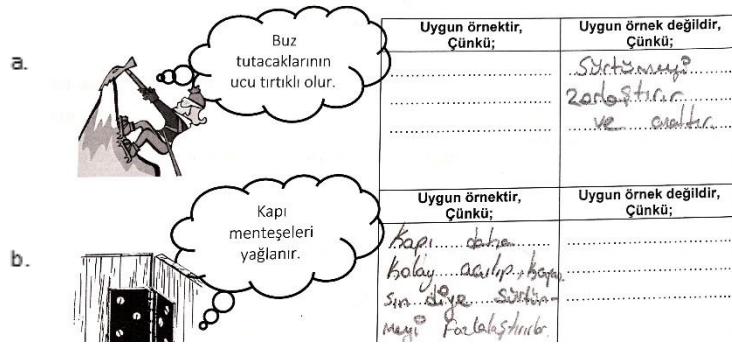 a.
Buz
tutacaklarının
ucu tırtıklı olur.
Uygun örnektir,
Çünkü;
Uygun örnek değildir,
Çünkü;
Sürtünmeyi
zorlaştırır
ve azaltır.
b.
Kapı
menteşeleri
yağlanır.
Uygun örnektir,
Çünkü;
Uygun örnek değildir,
Çünkü;
Kapı daha
kolay açılıp, kapan
sın diye sürtün-
meyi fazlalaştırırlar.